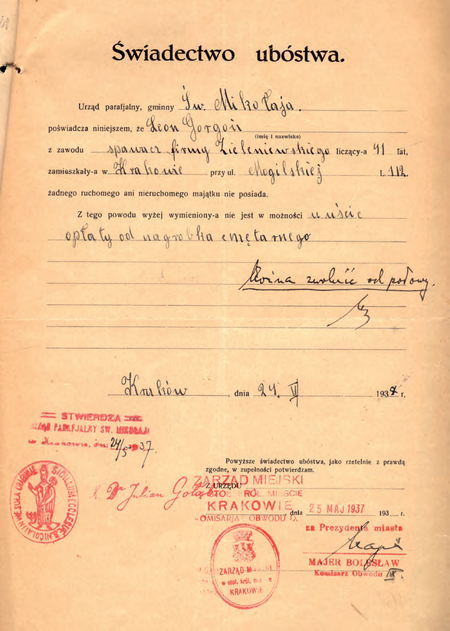 Świadectwo ubóstwa.
Urząd parafjalny, gminny Św. Mikołaja.
poświadcza niniejszem, że Leon Gorgoń
(imię i nazwisko)
z zawodu spawacz firmy Zieleniewskiego liczący-a 41 lat,
zamieszkały-a w Krakowie przy ul. Mogilskiej l. 112
żadnego ruchomego ani nieruchomego majątku nie posiada.
Z tego powodu wyżej wymieniony-a nie jest w możności uiście
opłaty od nagrobka cmętarnego
Można zwolnić od połowy.
Kraków dnia 24. V 1937 r.
STWIERDZA
URZĄD PARAFJALNY ŚW. MIKOŁAJA
w Krakowie, dn. 24/5 1937.
Powyższe świadectwo ubóstwa, jako rzetelnie z prawdą
zgodne, w zupełności potwierdzam.
Z URZĘDU
ZARZĄD MIEJSKI
W STOŁ. KRÓL. MIEŚCIE
KRAKOWIE
KOMISARJA OBWODU
X. Dr Julian Gołąb
dnia 25 MAJ 1937 193 r.
za Prezydenta miasta
MAJER BOLESŁAW
Komisarz Obwodu IV.
ZARZĄD MIEJSKI
w stoł. król. m.
KRAKOWIE